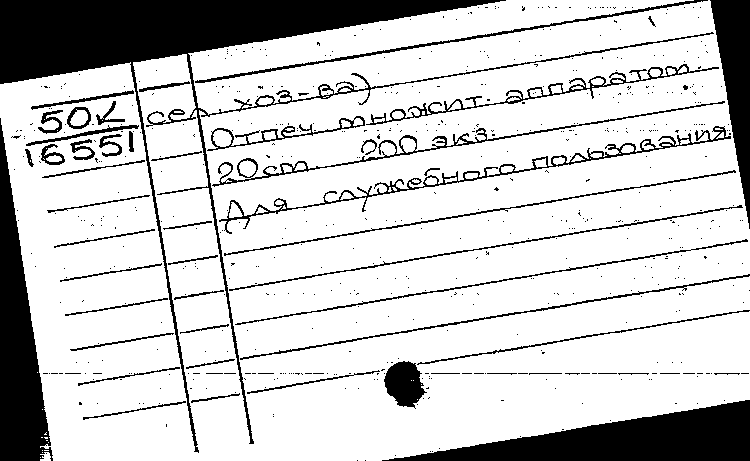 50К
16551
сел. хоз-ва)
Отпеч множит. аппаратом.
20 ст. 200 экз.
Для служебного пользования.